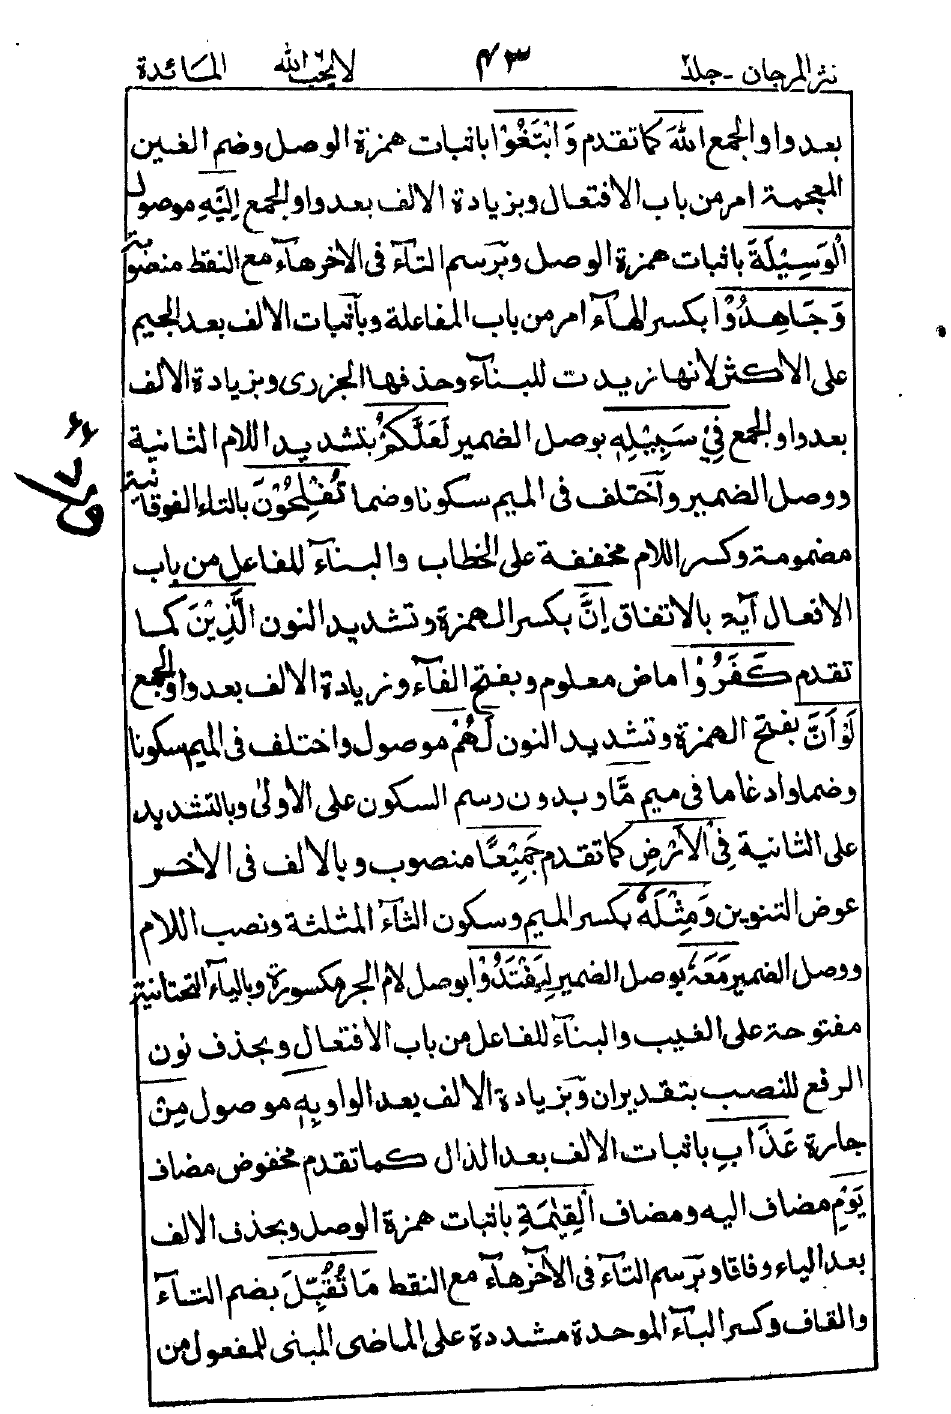 نثر المرجان - جلد ٢ ٤٣ لا يحب الله المائدة
بعد واو الجمع اللهَ كما تقدم وَابْتَغُوْا باثبات همزة الوصل وضم الغين
المعجمة امر من باب الافتعال وبزيادة الالف بعد واو الجمع اِلَيْهِ موصول
الْوَسِيْلَةَ باثبات همزة الوصل وبرسم التآء فى الاخر هآء مع النقط منصوبة
وَجَاهِدُوْا بكسر الهآء امر من باب المفاعلة وبآثبات الالف بعد الجيم
على الاكثر لانها زيدت للبنآء وحذفها الجزرى وبزيادة الالف
بعد واو الجمع فِيْ سَبِيْلِهٖ بوصل الضمير لَعَلَّكُمْ بتشديد اللام الثانية
ووصل الضمير وآختلف فى الميم سكونا وضما تُفْلِحُوْنَ بالتاء الفوقانية
مضمومة وكسر اللام مخففة على الخطاب والبنآء للفاعل من باب
الافعال آية بالاتفاق اِنَّ بكسر الهمزة وتشديد النون الَّذِيْنَ كما
تقدم كَفَرُوْا ماض معلوم وبفتح الفآء وزيادة الالف بعد واو الجمع
لَوْ اَنَّ بفتح الهمزة وتشديد النون لَهُمْ موصول واختلف فى الميم سكونا
وضما وادغاما فى ميم مَّا وبدون رسم السكون على الاولىٰ وبالتشديد
على الثانية فِى الْاَرْضِ كما تقدم جَمِيْعًا منصوب وبالالف فى الاخر
عوض التنوين وَمِثْلَهٗ بكسر الميم وسكون الثآء المثلثة ونصب اللام
ووصل الضمير مَعَهٗ بوصل الضمير لِيَفْتَدُوْا بوصل لام الجر مكسورة وبالياء التحتانية
مفتوحة على الغيب والبنآء للفاعل من باب الافتعال وبحذف نون
الرفع للنصب بتقدير ان وبزيادة الالف بعد الواو بِهٖ موصول مِنْ
جارة عَذَابِ باثبات الالف بعد الذال كما تقدم مخفوض مضاف
يَوْمِ مضاف اليه ومضاف الْقِيٰمَةِ باثبات همزة الوصل وبحذف الالف
بعد الياء وفاقا وبرسم التآء فى الآخر هآء مع النقط مَا تُقُبِّلَ بضم التآء
والقاف وكسر البآء الموحدة مشددة على الماضى المبنى للمفعول من